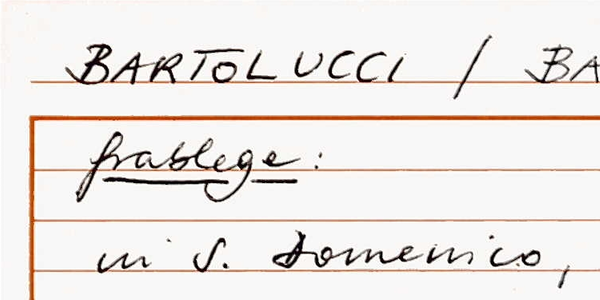 BARTOLUCCI / BA
Grablege:
in S. Domenico,